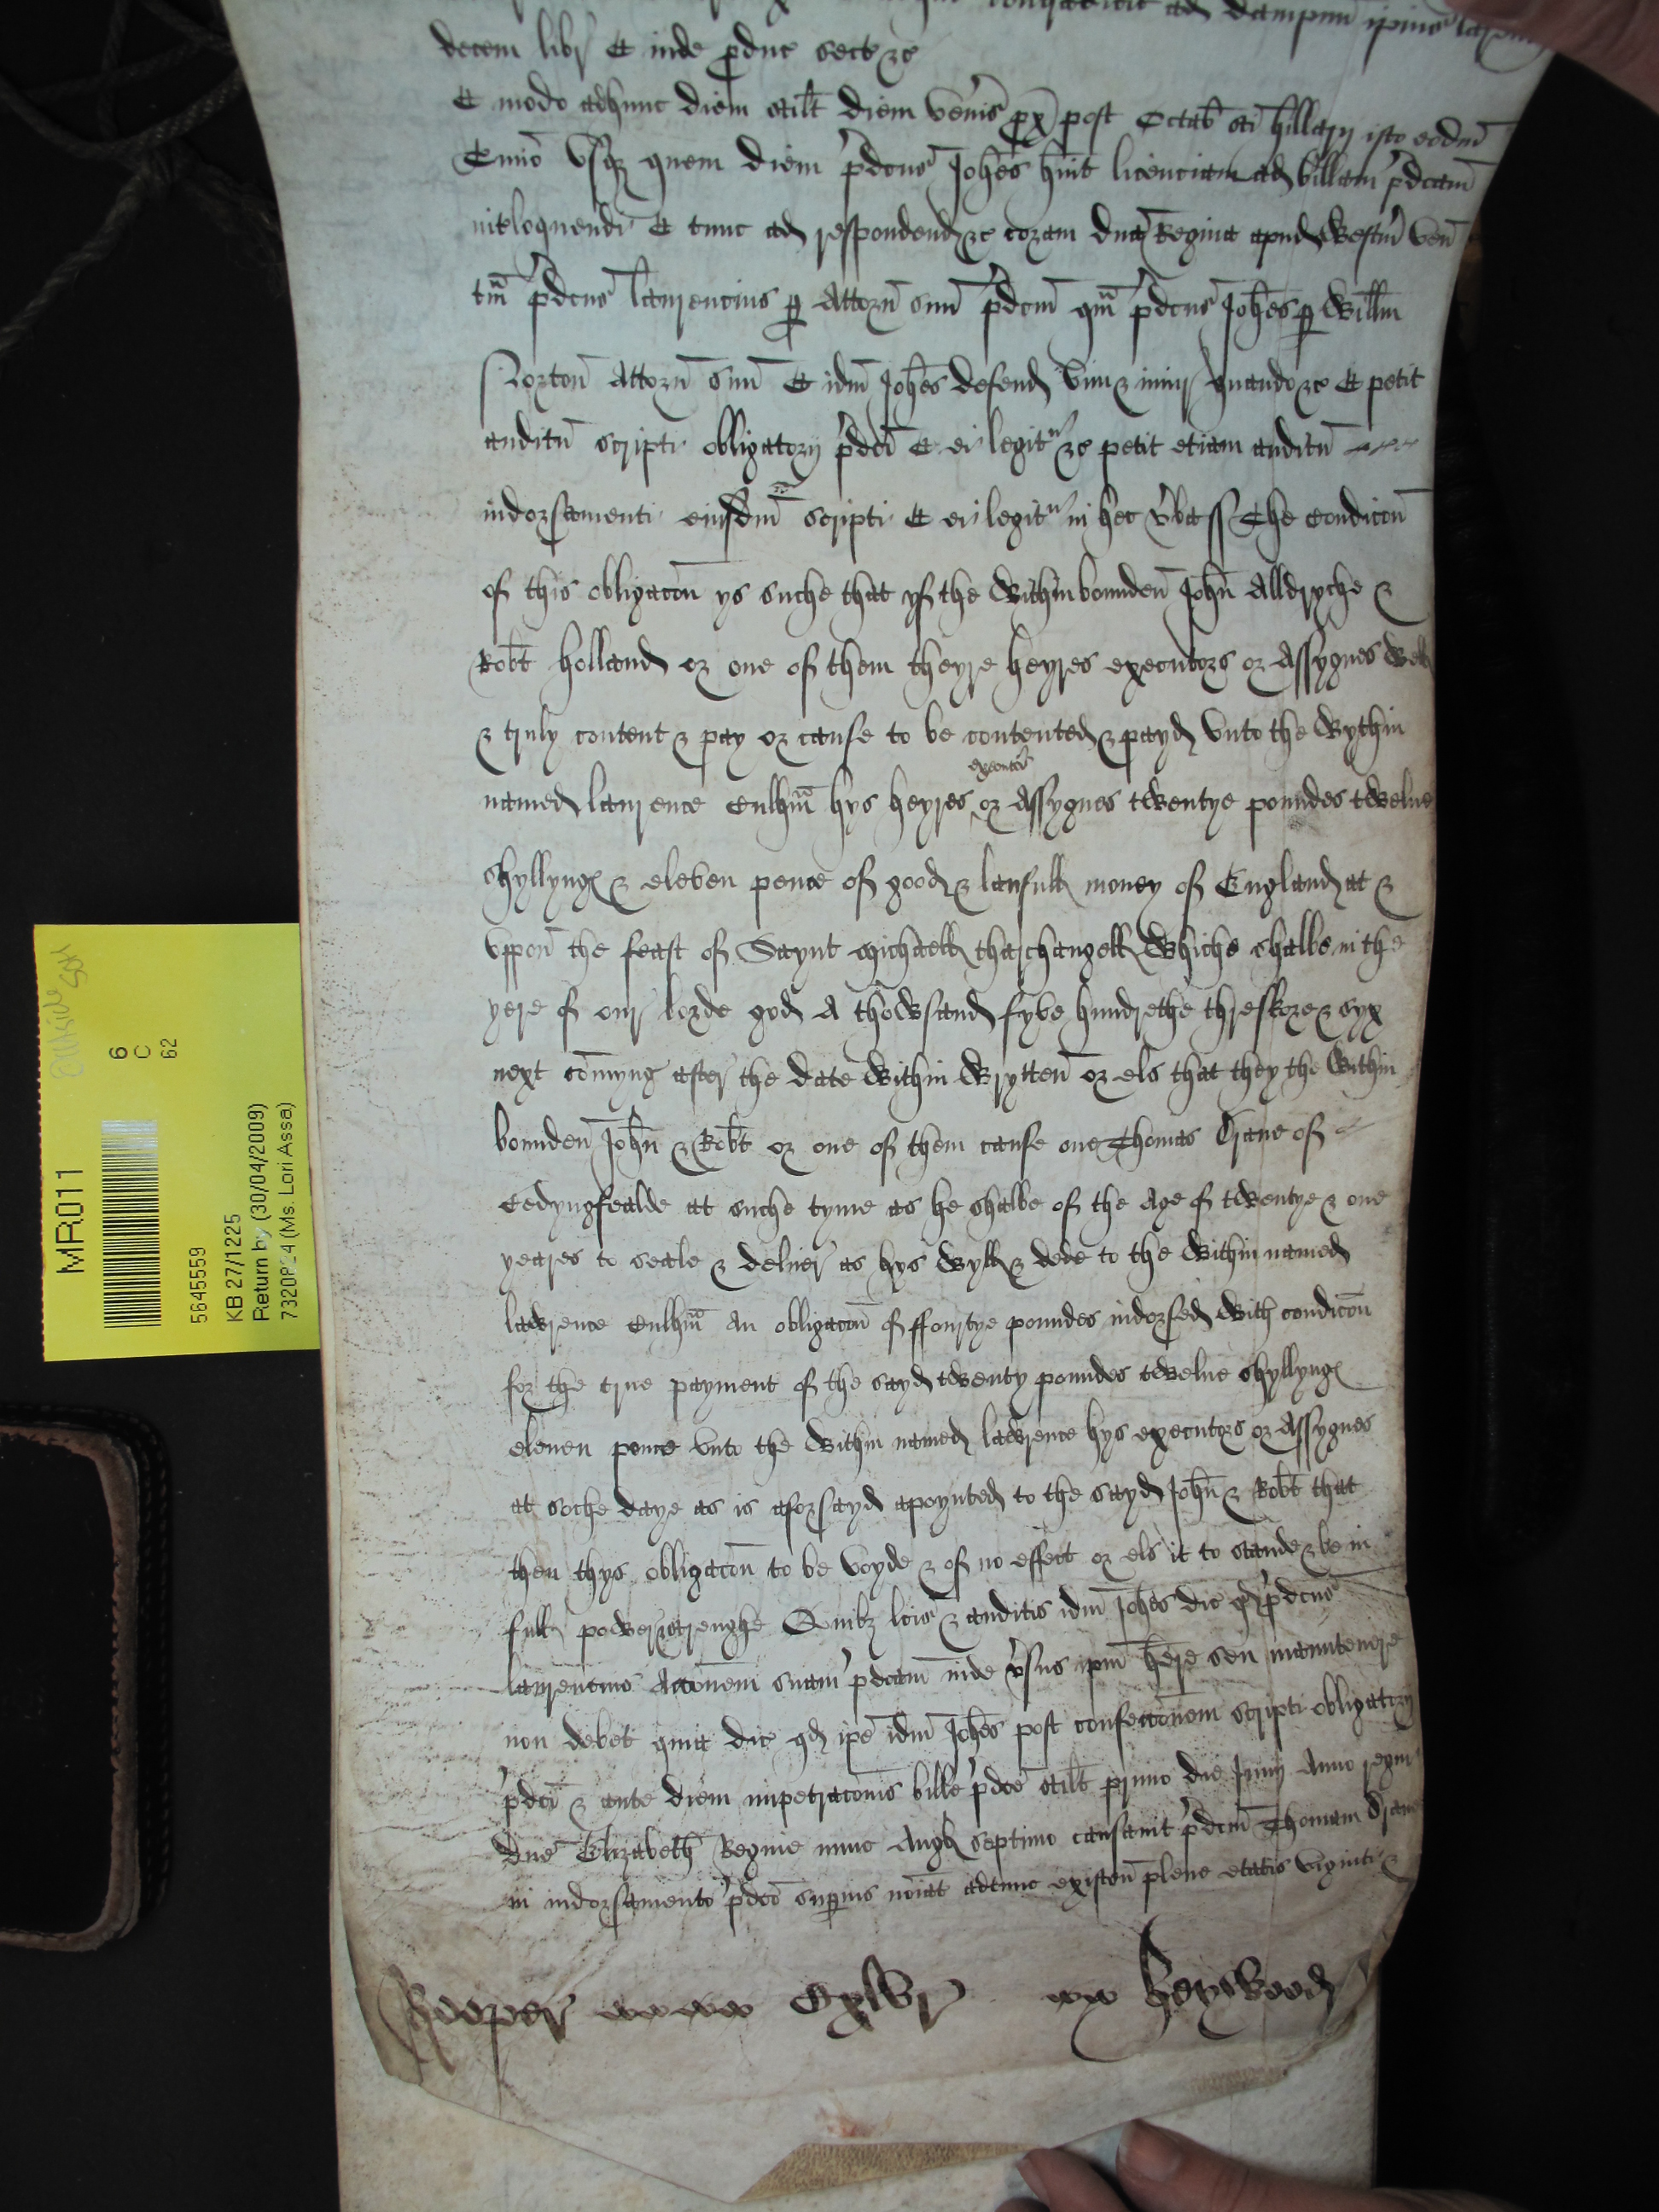 ad dampnu ipius
decem libr Et inde pduc secta &c
Et modo adhunc diem scilt diem veneris px post Octab sci hillarij isto eodm
Tmio vsqz quem diem pdcus Johes huit licenciam ad billam pdcam
inteloquendi Et tunc ad respondend &c coram dna Regina apud Westm ven
tm pdcus laurencius p Attorn suu pdcm qm pdcus Johes p Willm
Norton Attorn suu Et idm Johes defend vim & iniur quando &c Et petit
auditu scripti obligatorij pdci Et ei legitr &c petit etiam auditu
indorsamenti eiusdm scripti Et ei legitr in hec vba ss The Condicon
of this obligacon ys suche that yf the Within bounden John Alldryche &
Robt Holland or one of them theyre heyres executors or Assygnes Well
& truly content & pay or cause to be contented & payd vnto the Wythin
named laurence Culhm hys heyres executors or Assygnes twentye poundes twelue
shyllyngs & eleven pence of good & laufull money of England at &
vppon the feast of Saynt michaell tharchangell Whiche shalbe in the
yere of our lorde god A thowsand fyve hundrethe threskore & syx
next comyng after the date within Wrytten or els that they the Within
bounden John & Robt or one of them cause one Thomas Crane of
Cedyngfealde at suche tyme as he shalbe of the Age of twentye & one
yeares to seale & deliuer as hys Wyll & dede to the Within named
lawrence Culhm An obligacon of ffourtye poundes indorsed With condicon
for the true payment of the sayd twenty poundes twelue shyllyngs
eleuen pence vnto the Within named lawrence hys executors or Assygnes
at soche daye as is aforsayd apoynted to the sayd John & Robt that
then thys obligacon to be voyde & of no effect or els it to stande & be in
full power & strenghe Quibz lcis & auditis idm Johes dic qd pdcus
laurencius Accionem suam pdcam inde vsus ipm here seu manutenere
non debet quia dic qd ipe idm Johes post confeccionem scripti obligatorij
pdci & ante diem impetracionis bille pdce scilt primo die Junij Anno regni
dne Elizabeth Regine nunc Angl septimo causauit pdcm Thomam Crane
in indorsamento pdco superius noiat adtunc existen plene etatis viginti &
heywood
MR011
6
C
62
5645559
KB 27/1225
Return by (30/04/2009)
(Ms. Lori Assa)